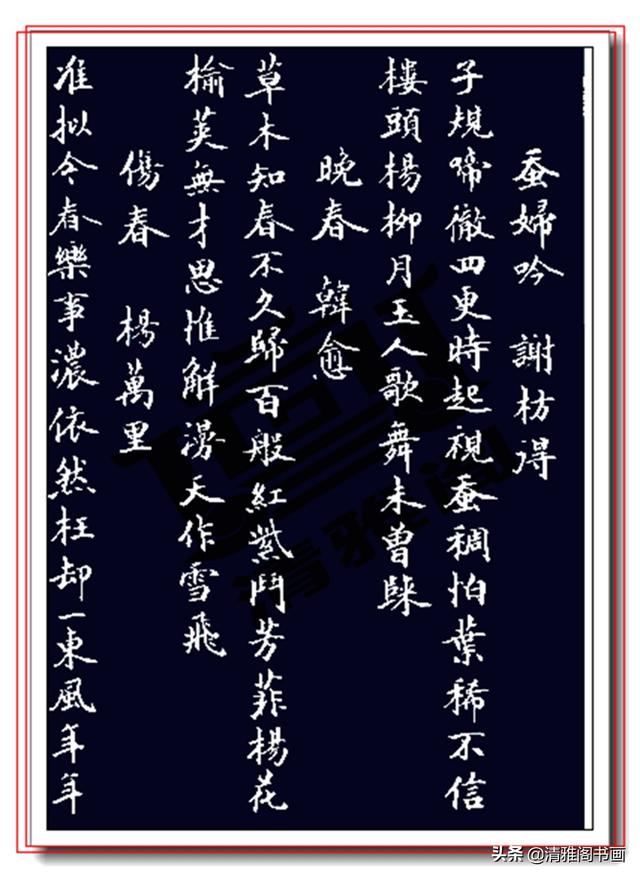 蚕婦吟 謝枋得
子規啼徹四更時起視蚕稠怕葉稀不信
樓頭楊柳月玉人歌舞未曾歸
晚春 韓愈
草木知春不久歸百般紅紫鬥芳菲楊花
榆莢無才思惟解漫天作雪飛
傷春 楊萬里
准拟今春樂事濃依然枉却一東風年年
清雅阁
头条@清雅阁书画